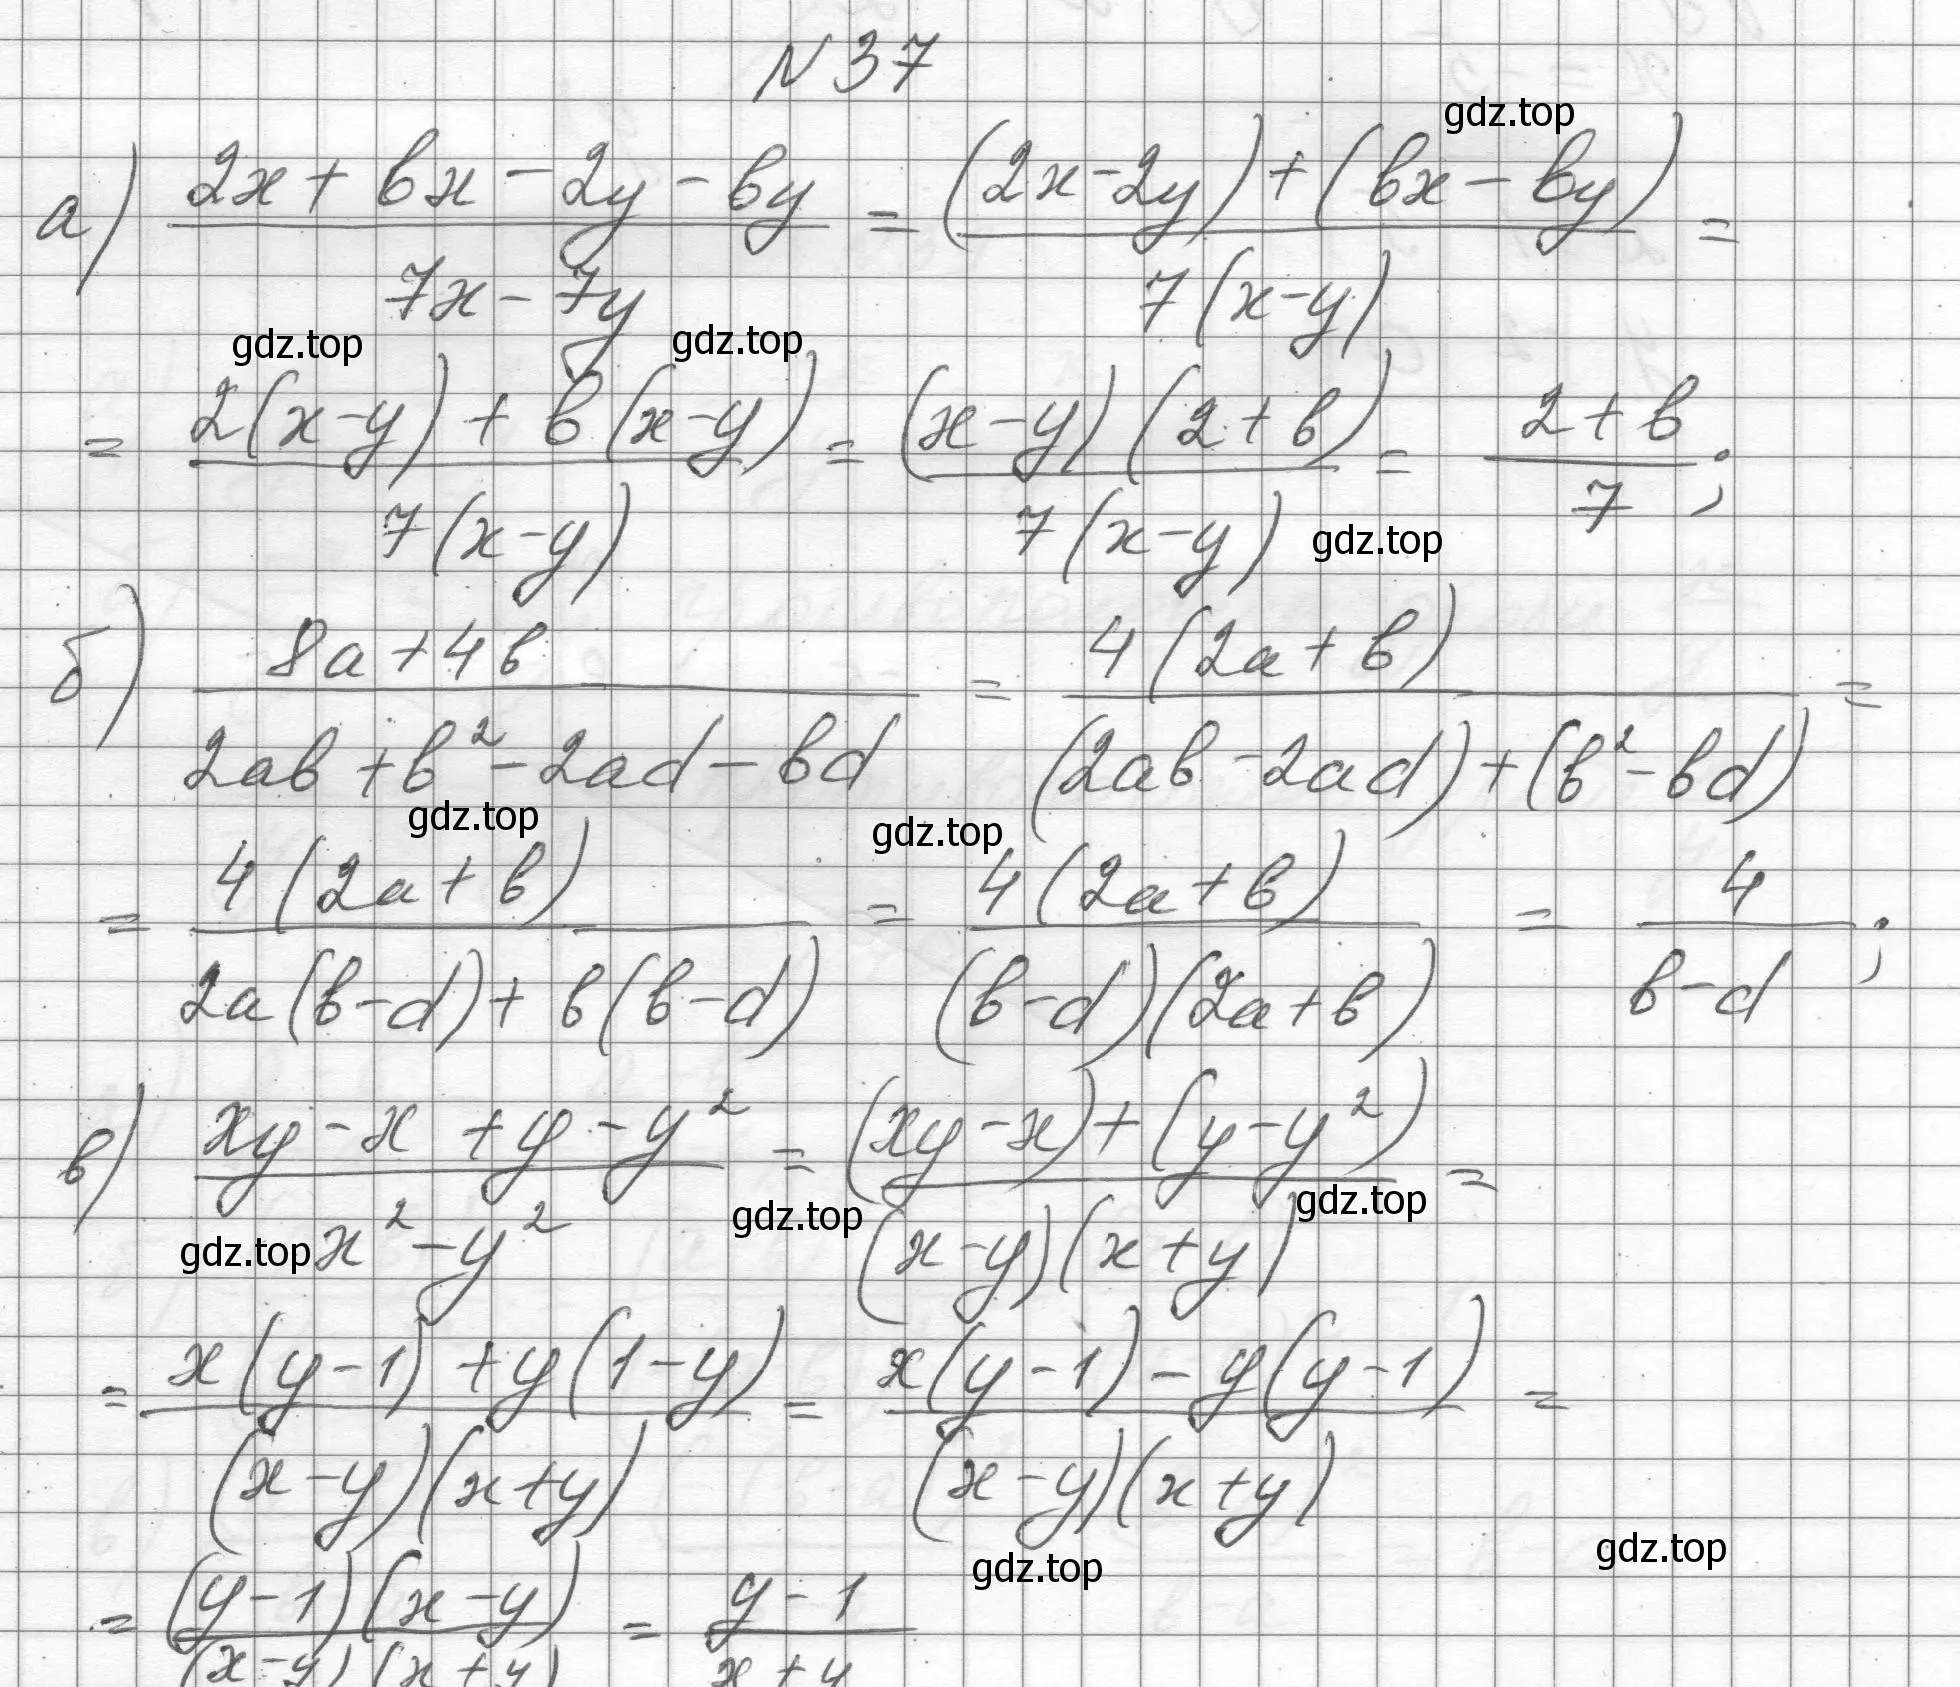 N 37
gdz.top
а) (2x + bx - 2y - by)/(7x - 7y) = ((2x - 2y) + (bx - by))/(7(x - y)) =
gdz.top gdz.top
= (2(x - y) + b(x - y))/(7(x - y)) = ((x - y)(2 + b))/(7(x - y)) = (2 + b)/7;
gdz.top
б) (8a + 4b)/(2ab + b² - 2ad - bd) = (4(2a + b))/((2ab - 2ad) + (b² - bd)) =
gdz.top gdz.top
= (4(2a + b))/(2a(b - d) + b(b - d)) = (4(2a + b))/((b - d)(2a + b)) = 4/(b - d);
в) (xy - x + y - y²)/(x² - y²) = ((xy - x) + (y - y²))/((x - y)(x + y)) =
gdz.top gdz.top gdz.top
= (x(y - 1) + y(1 - y))/((x - y)(x + y)) = (x(y - 1) - y(y - 1))/((x - y)(x + y)) =
gdz.top gdz.top
= ((y - 1)(x - y))/((x - y)(x + y)) = (y - 1)/(x + y)